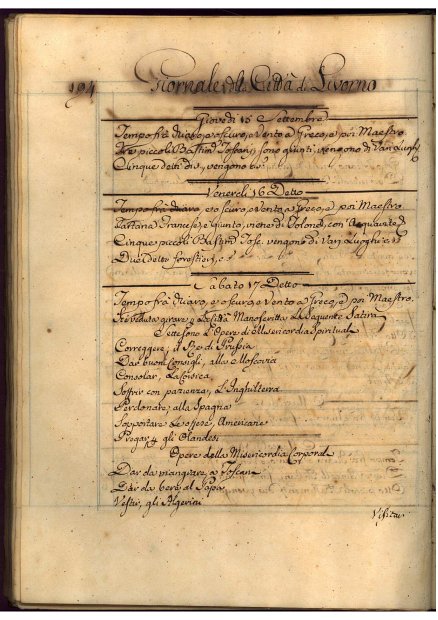 194 Giornale della Città di Livorno
Giovedi 15 Settembre
Tempo frà chiaro, e oscuro, e Vento a Greco, e poi Maestro
Tre piccoli Bastim.ti Toscani, sono giunti, vengono di Varj Luoghi
Cinque detti vengono
Venerdi 16 Detto
Tempo frà chiaro, e oscuro, e Vento a Greco, e poi Maestro
Tartana Francese, e giunta, viene di Tolone, con
Cinque piccoli Bastim.ti Tosc. vengono di Varj Luoghi, e
Due detti forestieri, e
Sabato 17 Detto
Tempo frà chiaro, e oscuro e Vento a Greco, e poi Maestro.
Si è veduto girare p. la Città Manoscritta la Seguente Satira
Sette sono l'Opere di Misericordia Spirituali
Correggere, il Re di Prussia
Dar buoni Consigli, alla Moscovia
Consolar, La Corsica
Soffrir con pazienza, L'Inghilterra
Perdonare, alla Spagna
Sopportare Le offese, Americane
Pregar p. gli Olandesi
Opere della Misericordia Corporali
Dar da mangiare, a Toscani
Dar da bere, al Papa
Vestir, gli Algerini
Visitar